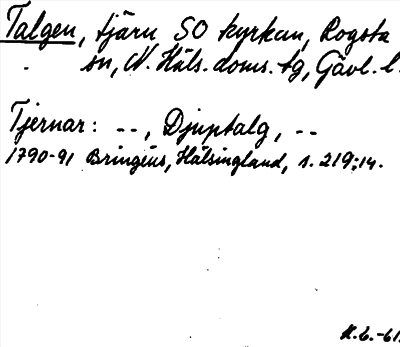 Talgen, tjärn SO kyrkan, Rogsta
sn, N. Häls. doms. tg, Gävl. l.
Tjernar: --, Djuptalg, --
1790-91 Bringéus, Hälsingland, s. 219:14.
K.L.-61